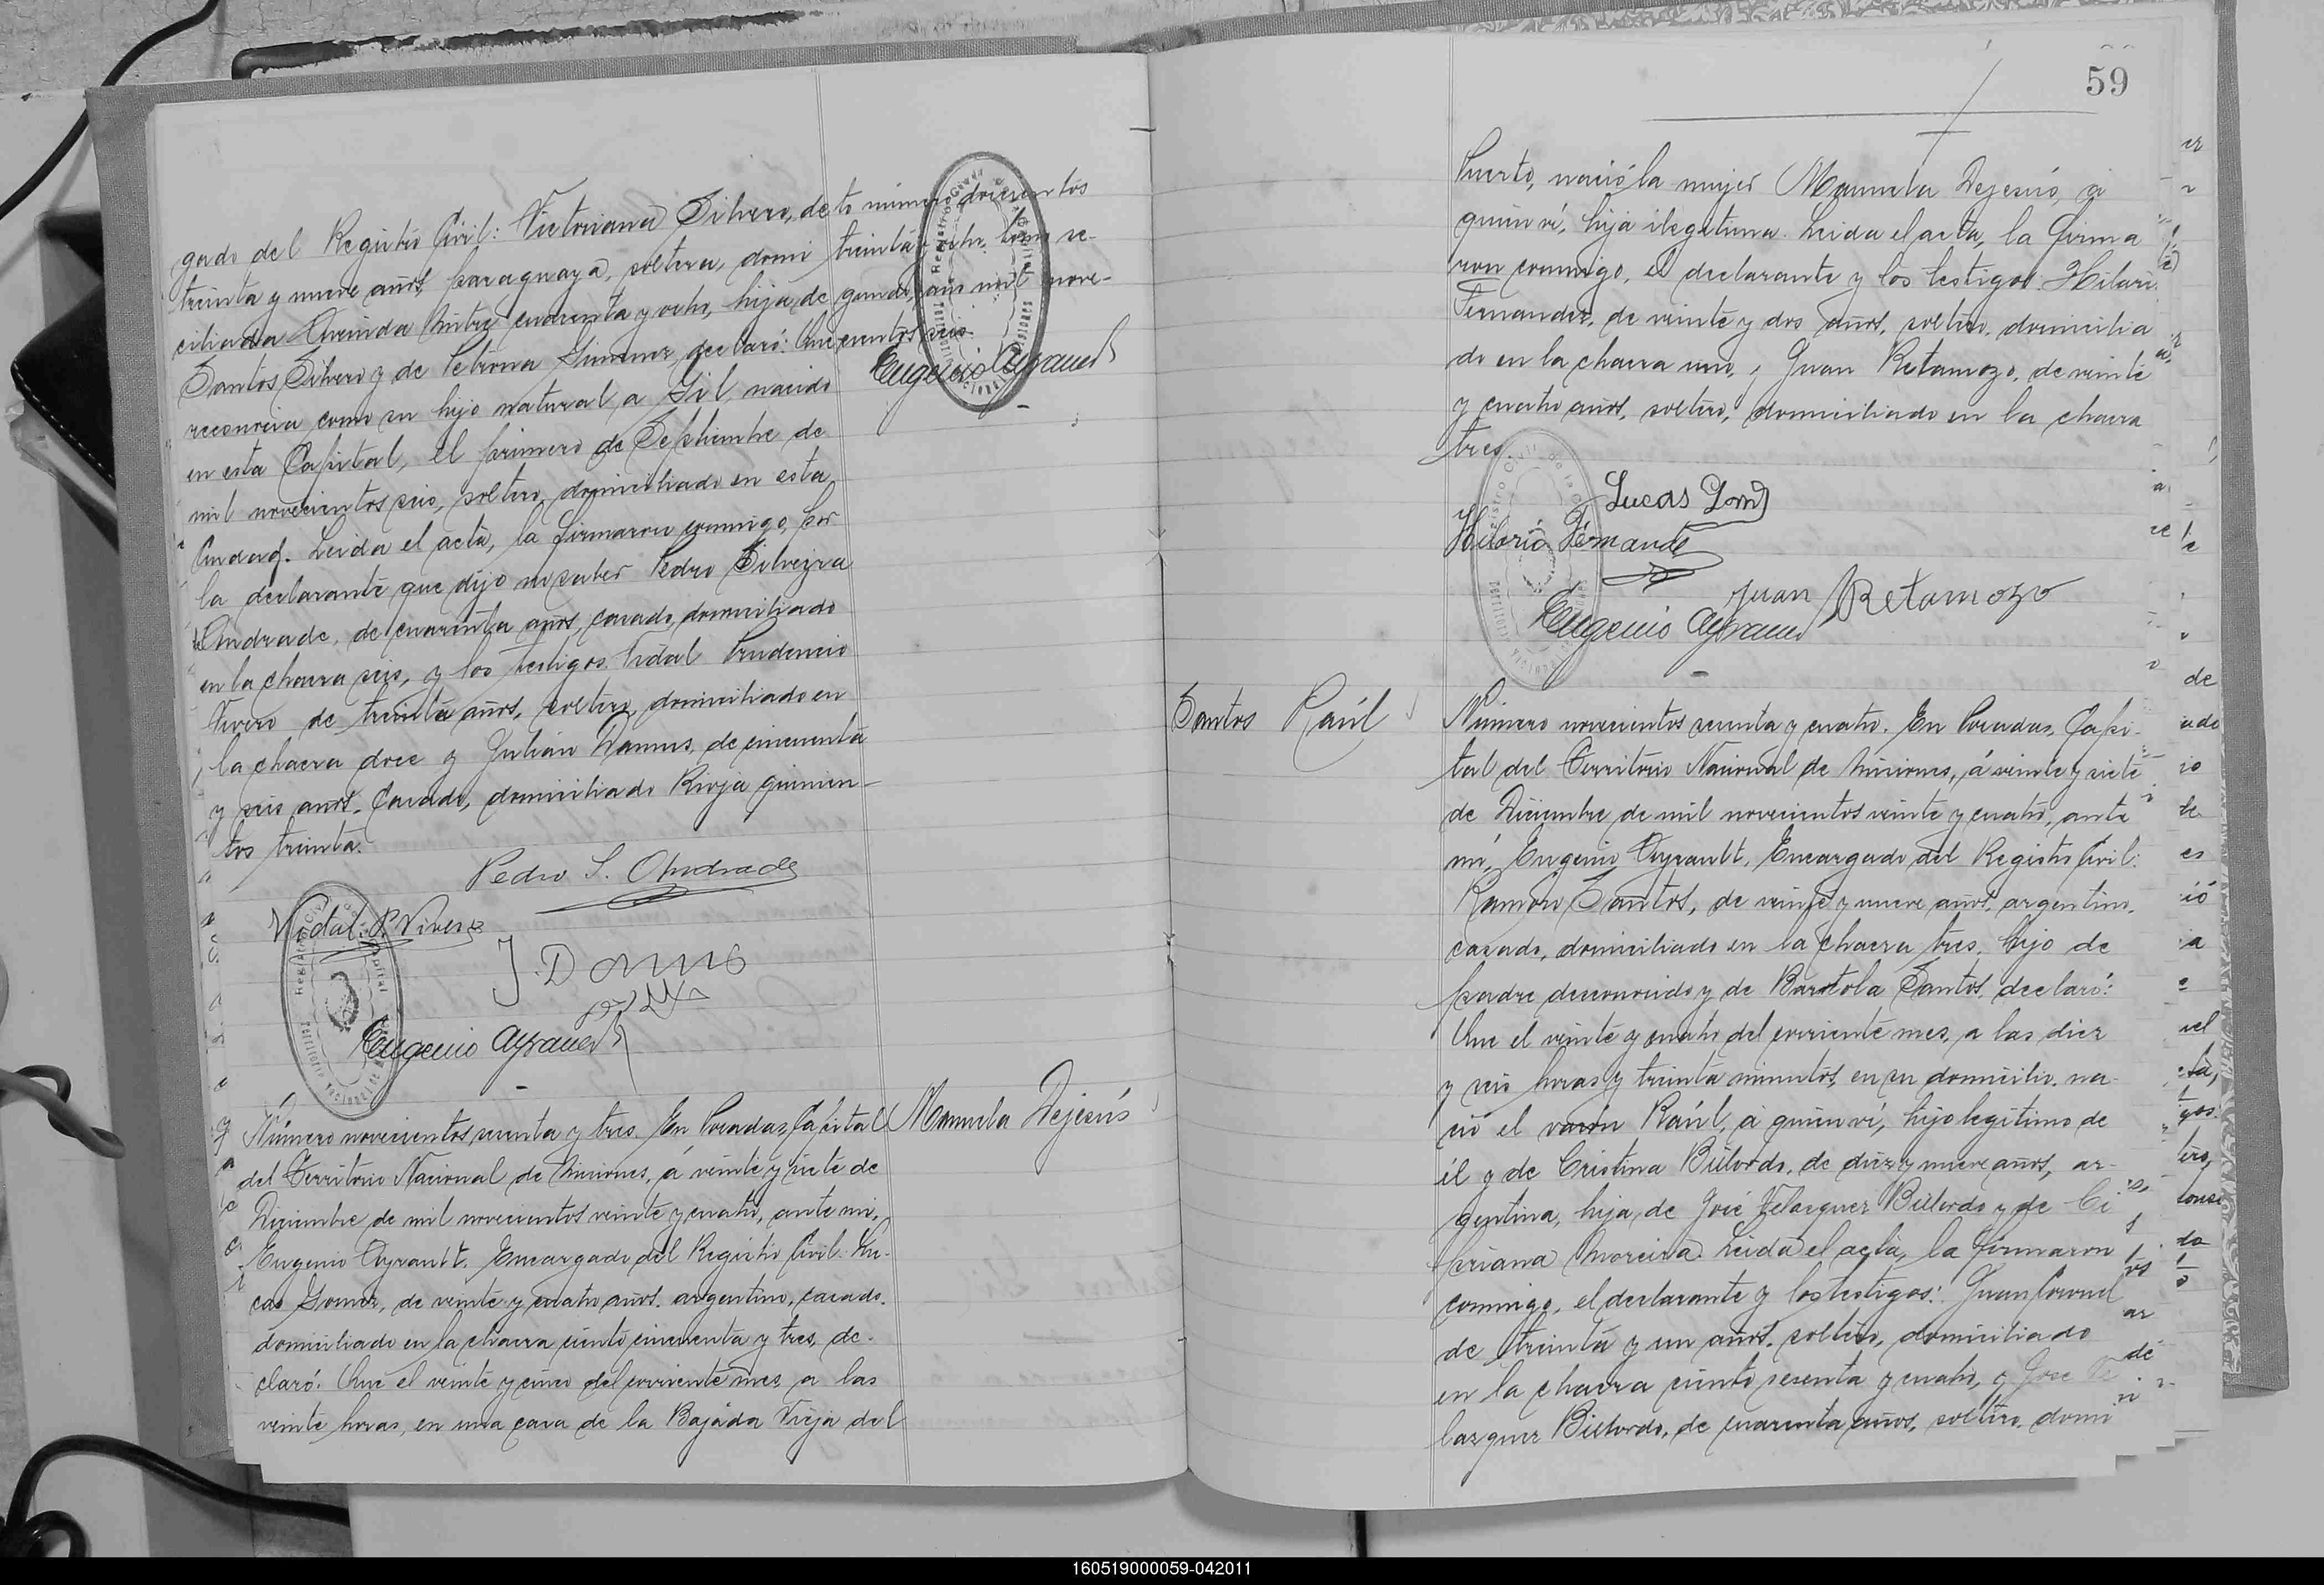 gado del Registro Civil: Victoriana Silvero, de
treinta y nueve años, paraguaya, soltera, domi
ciliada Avenida Mitre cuarenta y ocho, hija de
Santos Silvero y de Petrona Gimenez, declaró: Que
reconocia como su hijo natural, a Gil, nacido
en esta Capital, el primero de Septiembre de
mil novecientos seis, soltero, domiciliado en esta
Ciudad. Leida el acta, la firmaron conmigo, por
la declarante que dijo no saber Pedro Silveyra
Andrade, de cuarenta años, casado, domiciliado
en la chacra seis, y los testigos: Vidal Prudencio
Vivero de treinta años, soltero, domiciliado en
la chacra doce y Julián Damus, de cincuenta
y seis años, Casado, domiciliado Rioja quinien-
tos treinta.
to número doscientos
treinta y ocho. Tomo se-
gundo, año mil nove-
cientos seis.
Eugenio Ayrault
Pedro S. Andrade
Vidal P. Vivero
J. Damus
Eugenio Ayrault
Manuela Dejesús
Número novecientos sesenta y tres. En Posadas, Capital
del Territorio Nacional de Misiones, á veinte y siete de
Diciembre de mil novecientos veinte y cuatro, ante mi,
Eugenio Ayrault, Encargado del Registro Civil: Lu-
cas Gomez, de veinte y cuatro años, argentino, casado,
domiciliado en la chacra ciento cincuenta y tres, de-
claró: Que el veinte y cinco del corriente mes, a las
veinte horas, en una casa de la Bajada Vieja del
59
Puerto, nació la mujer Manuela Dejesús, a
quien ví, hija ilegitima. Leida el acta, la firma
ron conmigo, el declarante y los testigos: Hilario
Fernandez, de veinte y dos años, soltero, domicilia
do en la chacra uno, y Juan Retamozo, de veinte
y cuatro años, soltero, domiciliado en la chacra
tres.
Lucas Gomez
Hilario Fernandez
Juan Retamozo
Eugenio Ayrault
Santos Raúl
Número novecientos sesenta y cuatro. En Posadas, Capi-
tal del Territorio Nacional de Misiones, á veinte y siete
de Diciembre de mil novecientos veinte y cuatro, ante
mi, Eugenio Ayrault, Encargado del Registro Civil:
Ramón Santos, de veinte y nueve años, argentino,
casado, domiciliado en la chacra tres, hijo de
padre desconocido y de Bartola Santos, declaró:
Que el veinte y cuatro del corriente mes, a las diez
y seis horas y treinta minutos, en su domicilio, na-
ció el varón Raúl, a quien ví, hijo legítimo de
él y de Cristina Bielordo, de diez y nueve años, ar-
gentina, hija de José Velazquez Bielordo y de Ci
priana Moreira. Leida el acta, la firmaron
conmigo, el declarante y los testigos: Juan Coronel
de treinta y un años, soltero, domiciliado
en la chacra ciento sesenta y cuatro, y José Ve
lazquez Bielordo, de cuarenta años, soltero, domi
160519000059-042011